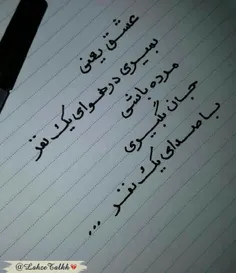 عشق یعنی
بمیری در هوای یک نفر
مرده باشی
جان بگیری
با صدای یک نفر ...
@Lahze Talkh